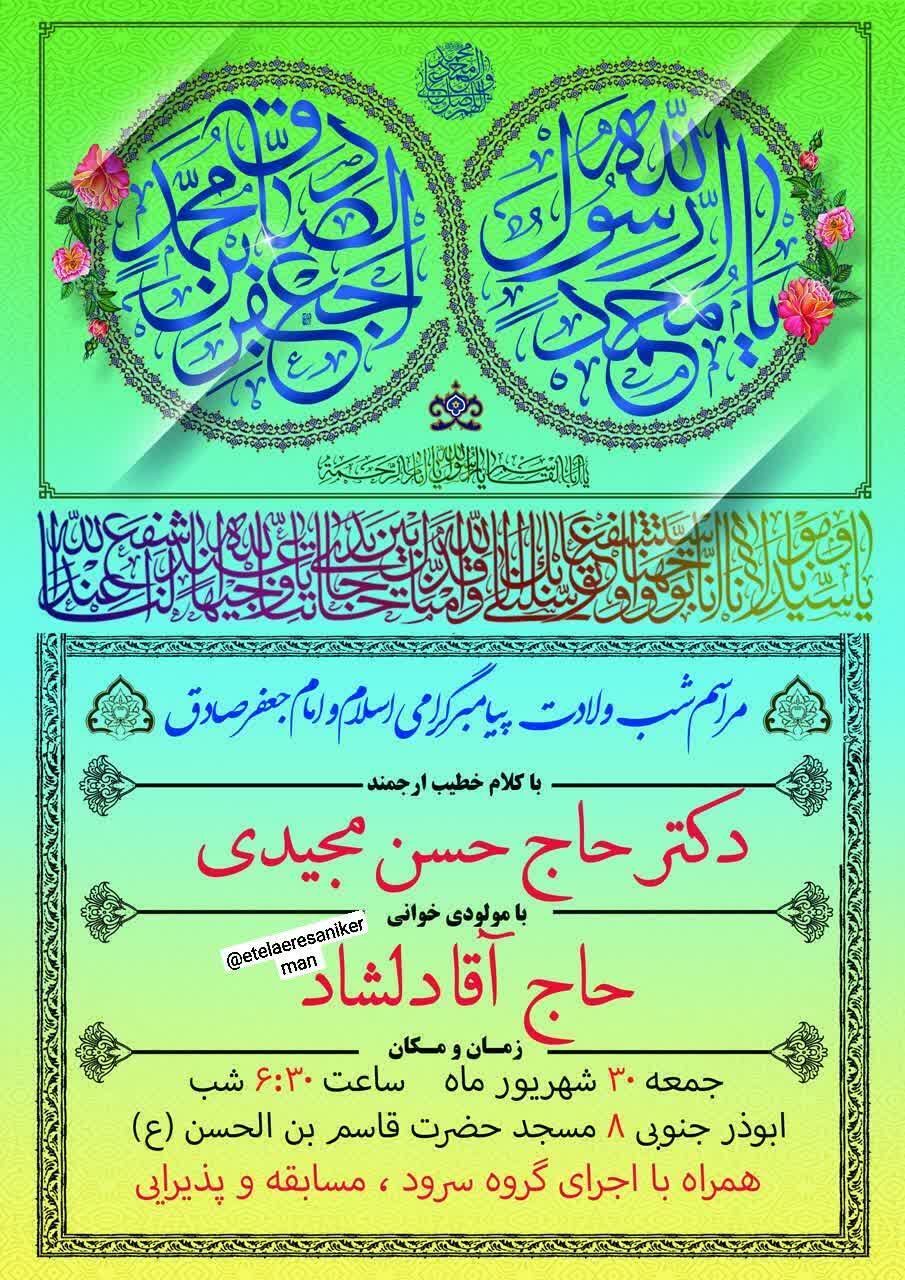 اللهم صل علی محمد و آل محمد
یا محمد رسول الله
جعفر بن محمد الصادق
یا اباالقاسم یا رسول الله یا امام الرحمة
یا سیدنا و مولانا انا توجهنا و استشفعنا و توسلنا بک الی الله و قدمناک بین یدی حاجاتنا یا وجیها عند الله اشفع لنا عند الله
مراسم شب ولادت پیامبر گرامی اسلام و امام جعفر صادق
با کلام خطیب ارجمند
دکتر حاج حسن مجیدی
با مولودی خوانی
حاج آقا دلشاد
@etelaeresaniker
man
زمـان و مـکان
جمعه ۳۰ شهریور ماه ساعت ۶:۳۰ شب
ابوذر جنوبی ۸ مسجد حضرت قاسم بن الحسن (ع)
همراه با اجرای گروه سرود ، مسابقه و پذیرایی